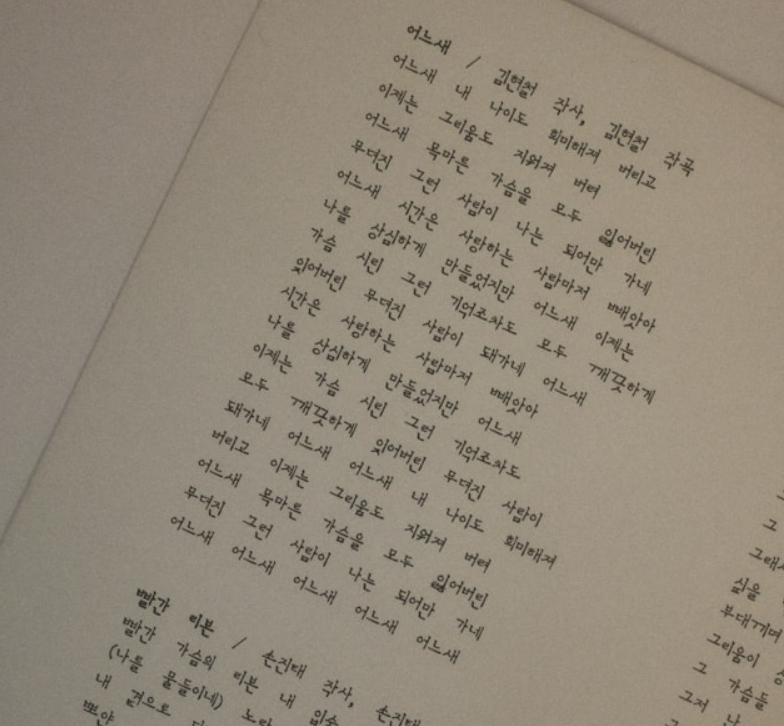 어느새 / 김현철 작사, 김현철 작곡
어느새 내 나이도 희미해져 버리고
이제는 그리움도 지워져 버려
어느새 목마른 가슴을 모두 잃어버린
무뎌진 그런 사람이 나는 되어만 가네
어느새 시간은 사랑하는 사람마저 빼앗아
나를 상심하게 만들었지만 어느새 이제는
가슴 시린 그런 기억조차도 모두 깨끗하게
잊어버린 무뎌진 사람이 돼가네 어느새
시간은 사랑하는 사람마저 빼앗아
나를 상심하게 만들었지만 어느새
이제는 가슴 시린 그런 기억조차도
모두 깨끗하게 잊어버린 무뎌진 사람이
돼가네 어느새 어느새 내 나이도 희미해져
버리고 이제는 그리움도 지워져 버려
어느새 목마른 가슴을 모두 잃어버린
무뎌진 그런 사람이 나는 되어만 가네
어느새 어느새 어느새 어느새 어느새
빨간 리본 / 손진태 작사, 손진태
빨간 가슴의 리본 내 입술
(나를 물들이네) 노란
내 곁으로
뽀얀
그
그래서
싫을
부대끼며
그리움이
그 가슴들
그저 나